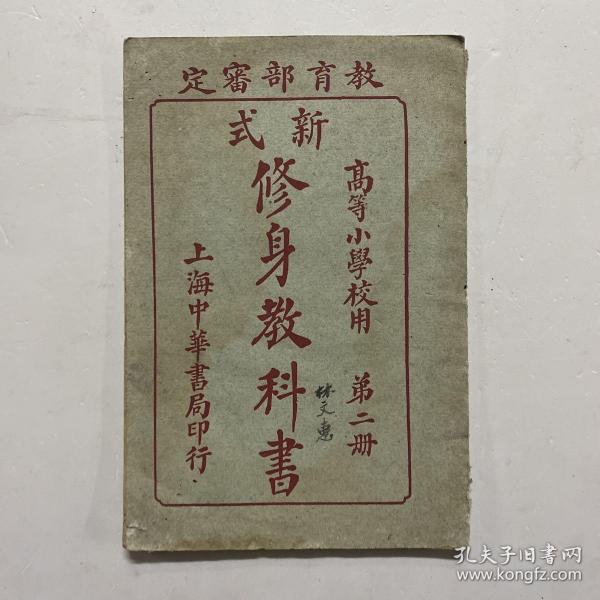 教育部審定
高等小學校用 第二册
新式
修身教科書
林文惠
上海中華書局印行
孔夫子旧书网
www.kongfz.com